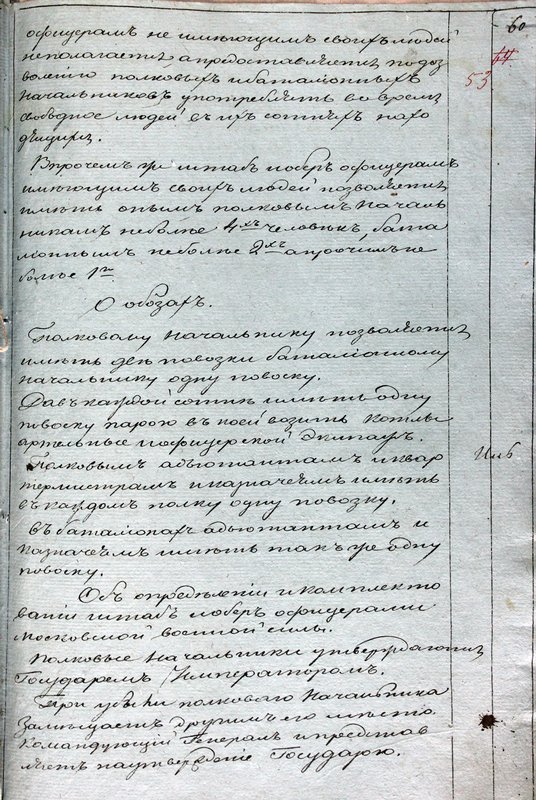 60
64
53
офицерамъ не имеющимъ своихъ людей
неполагается а предоставляется по доз
волению полковыхъ и баталіонныхъ
начальниковъ употреблять во время
свободное людей въ ихъ сотняхъ нахо
дящихся.
Впрочемъ же штабъ и оберъ офицерамъ
имеющимъ своихъ людей позволяется
иметь онымъ полковымъ началь
никамъ неболее 4хъ человекъ, бата
лионнымъ неболее 2хъ а прочимъ не
более 1го
О обозахъ.
Полковому начальнику позволяется
иметь две повозки баталіонному
начальнику одну повоску.
Да въ каждой сотне иметь одну
повоску парою въ коей возить котлы
артельные и офицерской экипажъ.
Полковымъ адъютантамъ и квар
термистрамъ и казначеямъ иметь
въ каждомъ полку одну повозку.
въ баталіонахъ адъютантамъ и
казначеямъ иметь такъ же одну
повоску.
Объ определеніи и комплекто
ваніи штабъ и оберъ офицерами
Московской военной силы.
Полковые начальники утверждаются
Государемъ Императоромъ.
При убыли полковаго Начальника
Замещаетъ другимъ его место
командующій Генералъ и представ
ляетъ на утвержденіе Государю.